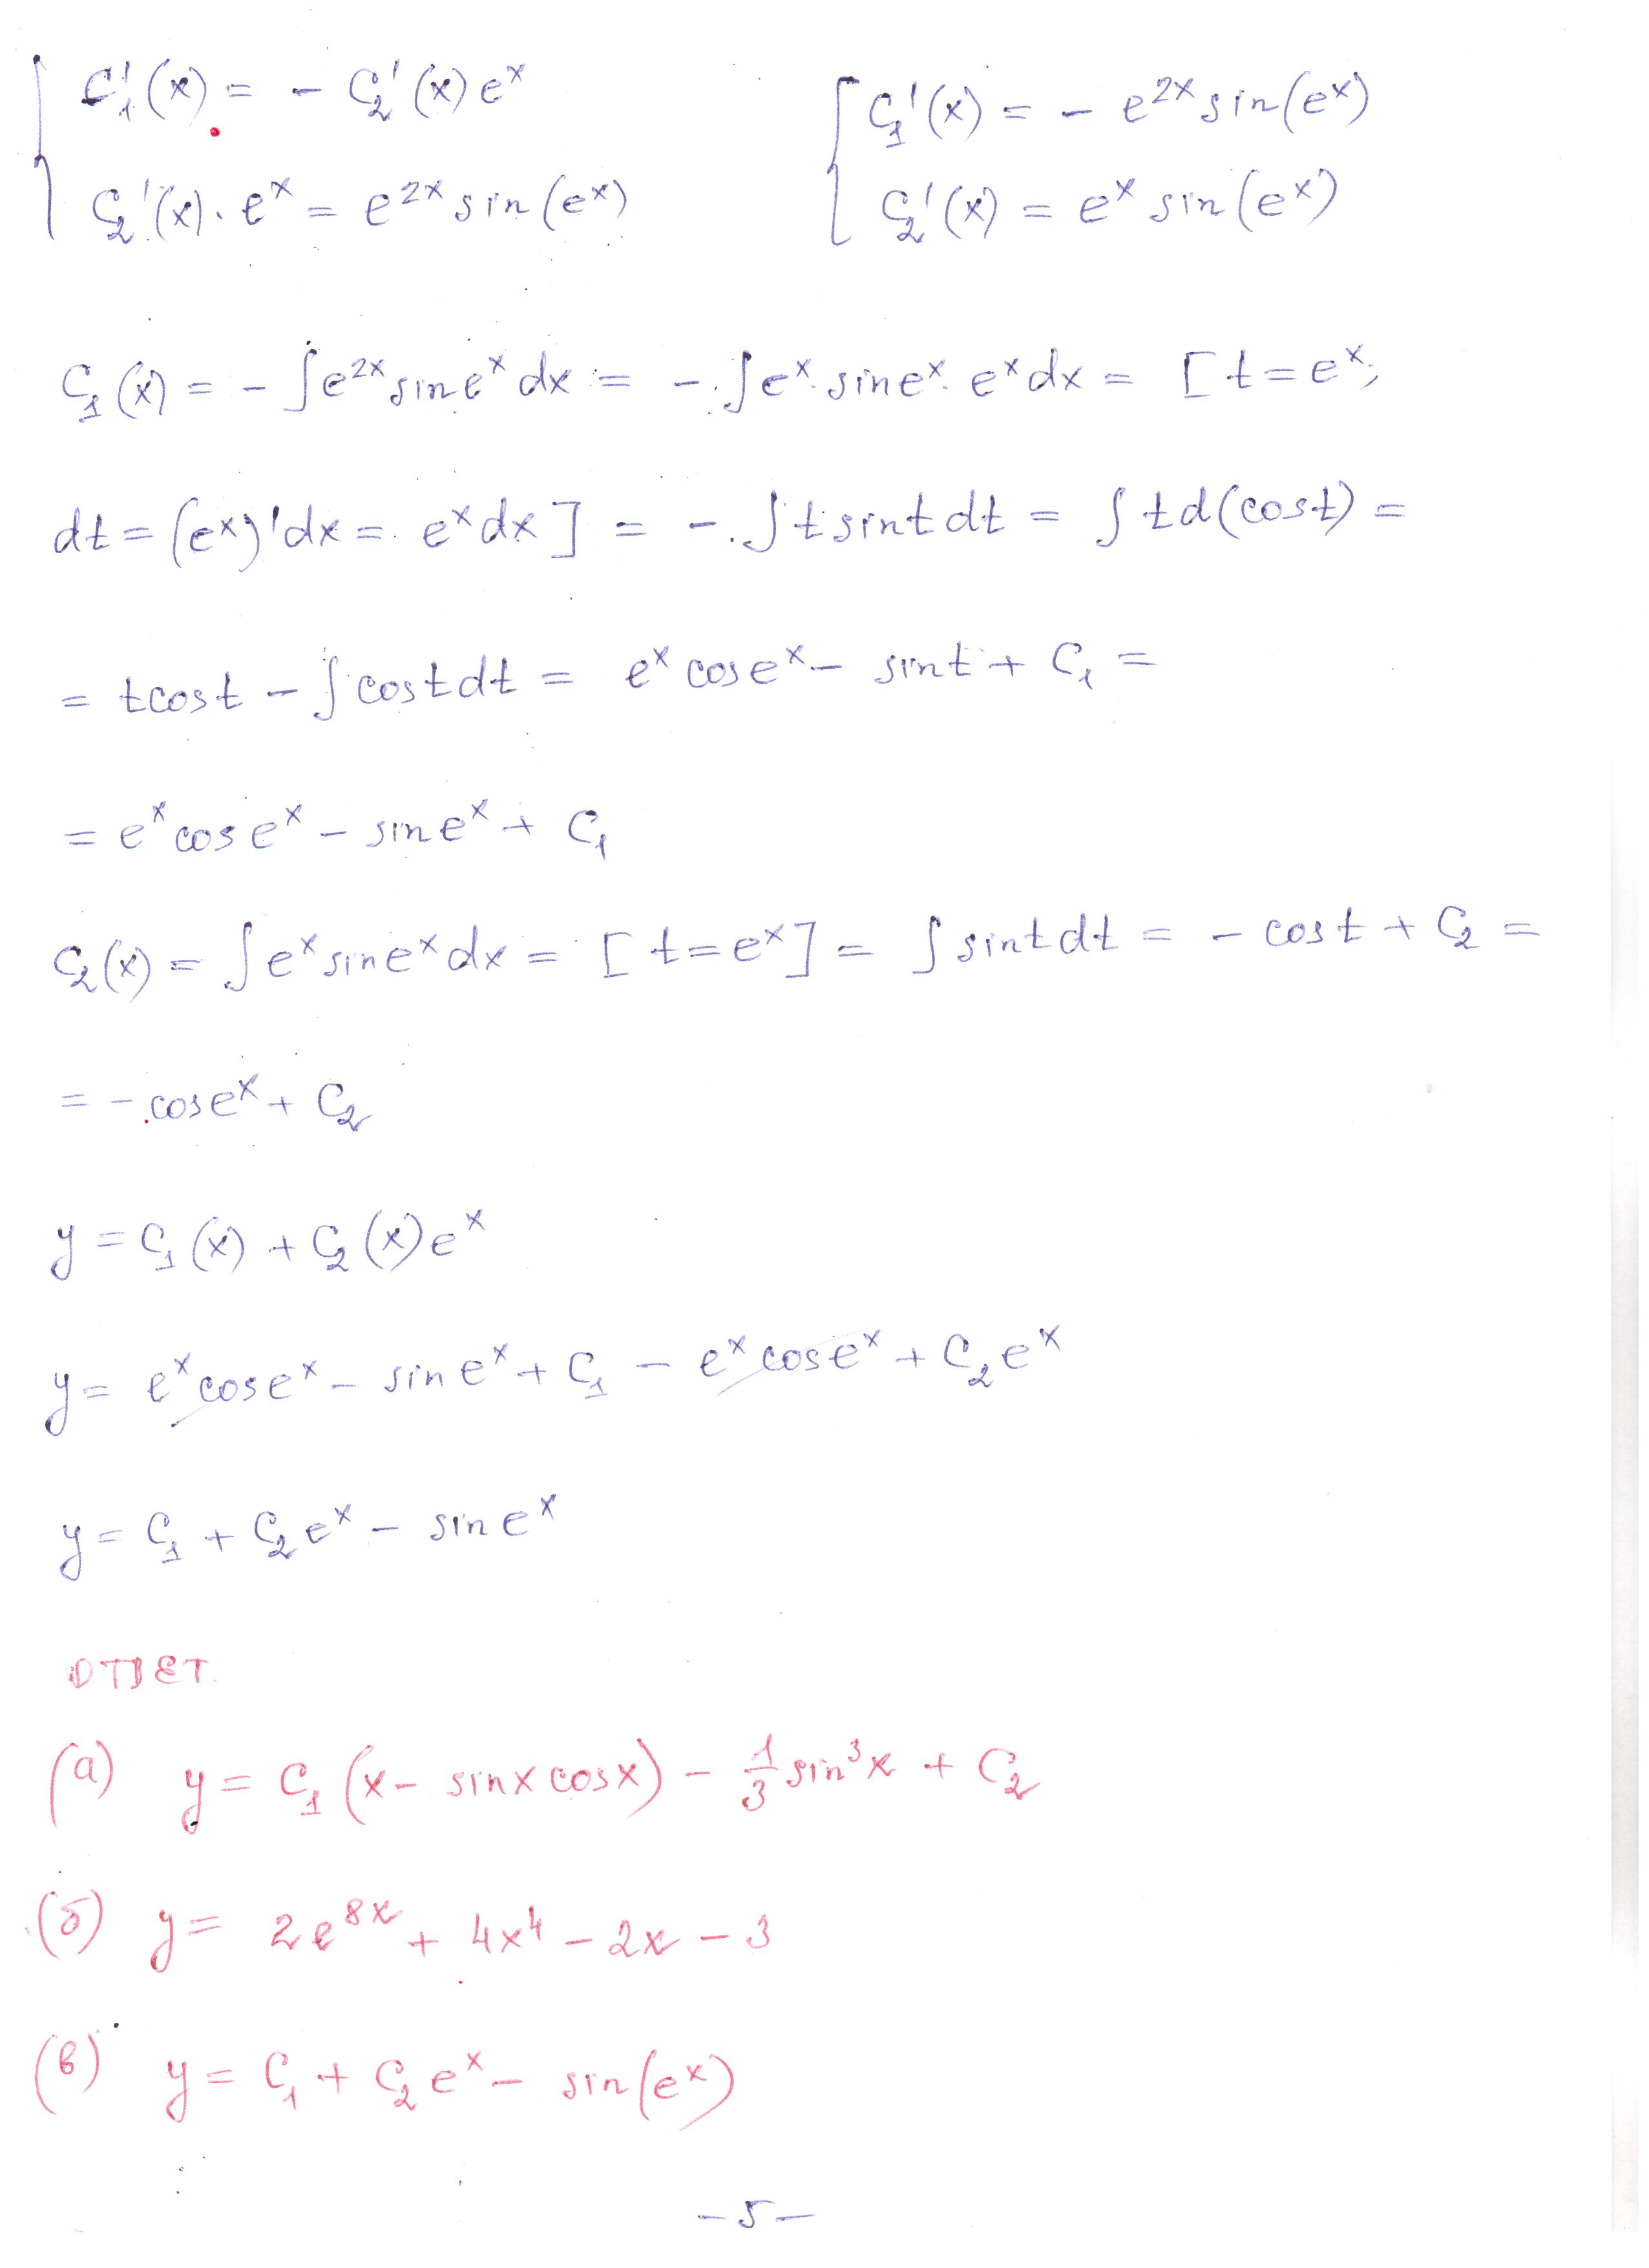 C₁'(x) = - C₂'(x) eˣ
C₂'(x) · eˣ = e²ˣ sin(eˣ)
C₁'(x) = - e²ˣ sin(eˣ)
C₂'(x) = eˣ sin(eˣ)
C₁(x) = - ∫ e²ˣ sin eˣ dx = - ∫ eˣ sin eˣ · eˣ dx = [ t = eˣ;
dt = (eˣ)' dx = eˣ dx ] = - ∫ t sin t dt = ∫ t d(cos t) =
= t cos t - ∫ cos t dt = eˣ cos eˣ - sin t + C₁ =
= eˣ cos eˣ - sin eˣ + C₁
C₂(x) = ∫ eˣ sin eˣ dx = [ t = eˣ ] = ∫ sin t dt = - cos t + C₂ =
= - cos eˣ + C₂
y = C₁(x) + C₂(x) eˣ
y = eˣ cos eˣ - sin eˣ + C₁ - eˣ cos eˣ + C₂ eˣ
y = C₁ + C₂ eˣ - sin eˣ
ОТВЕТ.
(а) y = C₁ (x - sin x cos x) - 1/3 sin³ x + C₂
(б) y = 2e⁸ˣ + 4x⁴ - 2x - 3
(в) y = C₁ + C₂ eˣ - sin(eˣ)
- 5 -